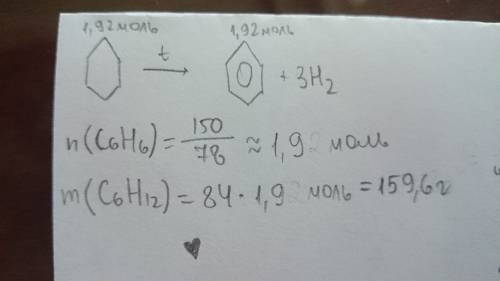 1,92 моль 1,92 моль
t
+ 3H₂
n(C6H6) = 150/78 ≈ 1,92 моль
m(C6H12) = 84 · 1,9 моль = 159,6г